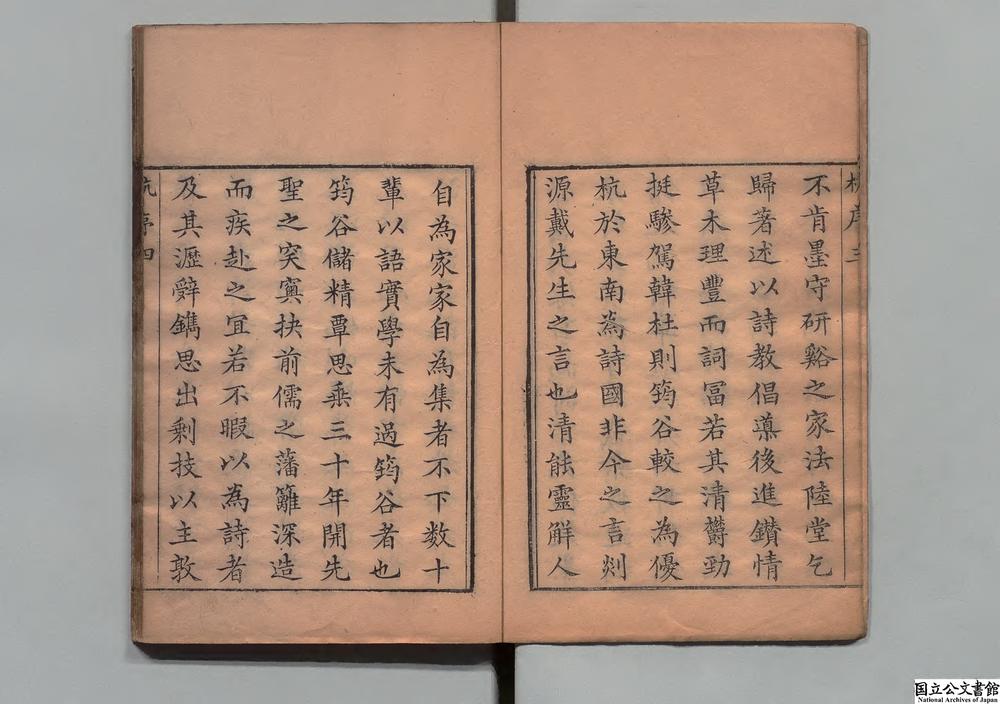 杭序三
不肯墨守研谿之家法陸堂乞
歸著述以詩教倡導後進鑽情
草木理豐而詞冨若其清欝勁
挺驂駕韓杜則筠谷較之為優
杭於東南為詩國非今之言剡
源戴先生之言也清能靈解人
自為家家自為集者不下数十
輩以語實學未有過筠谷者也
筠谷儲精覃思乗三十年開先
聖之突寞抉前儒之藩籬深造
而疾赴之冝若不暇以為詩者
及其瀝辤鐫思出剩技以主敦
杭序四
国立公文書館
National Archives of Japan